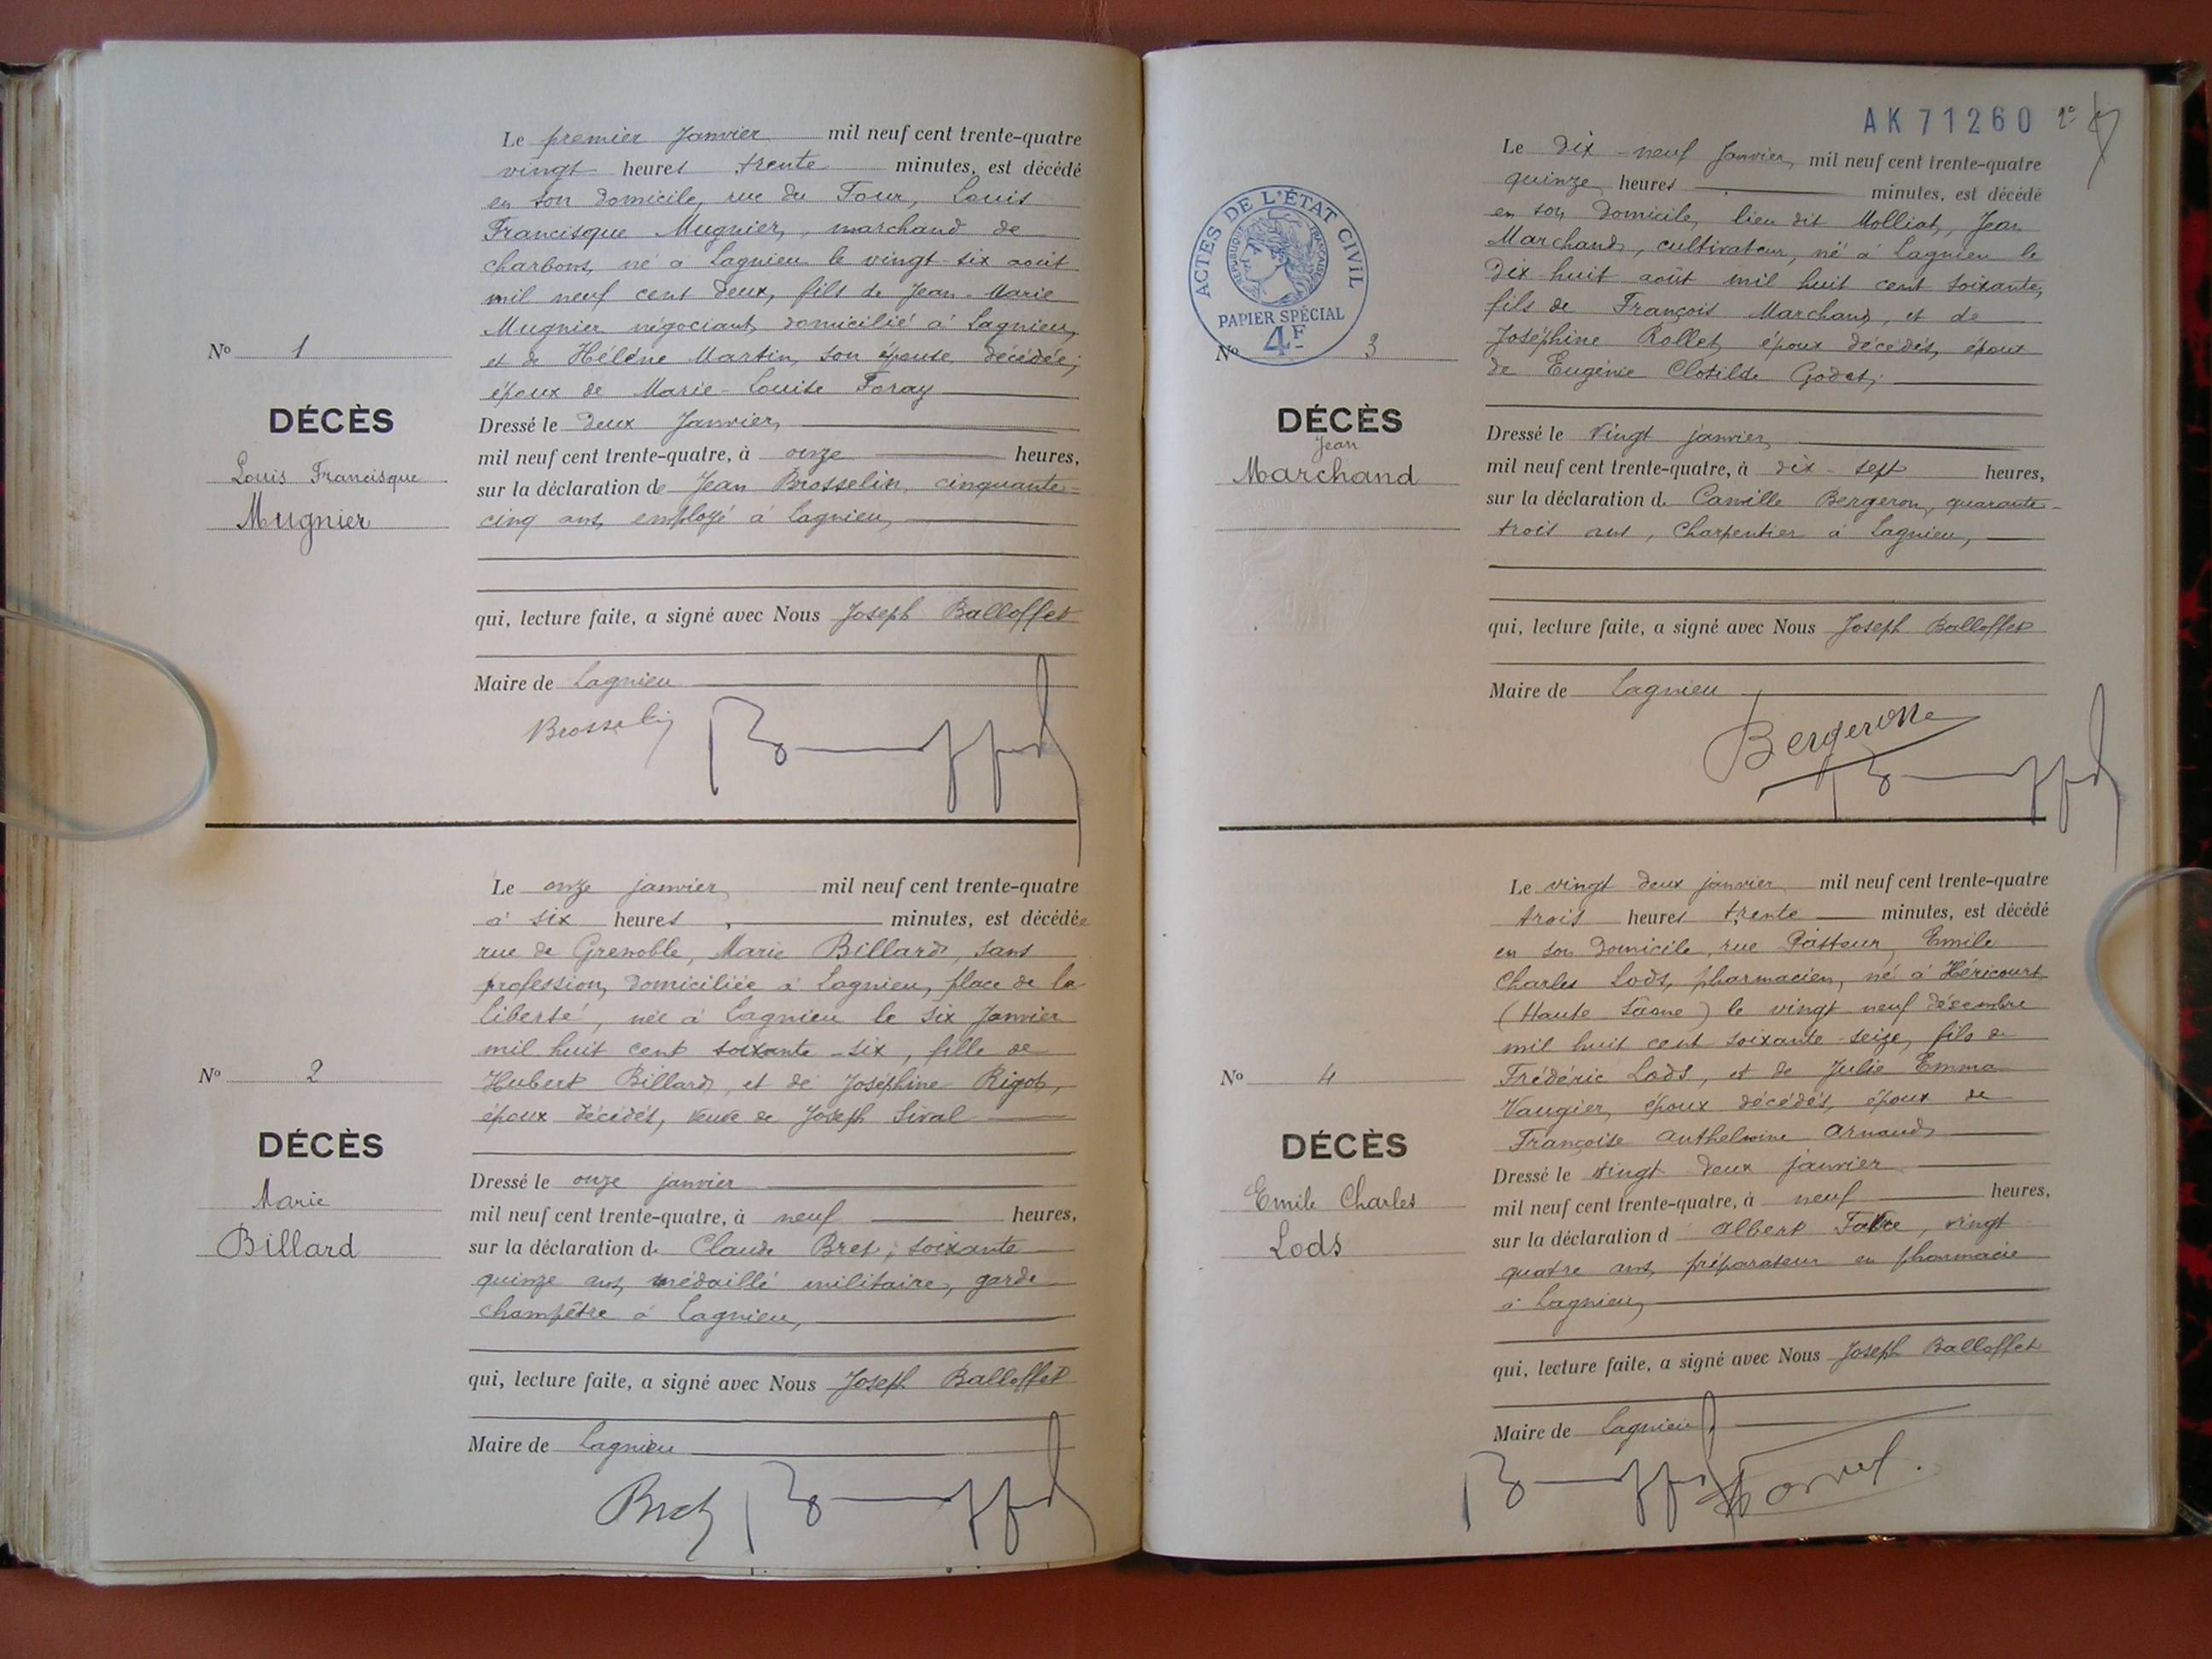 Le premier Janvier mil neuf cent trente-quatre
vingt heures trente minutes, est décédé
en son domicile, rue du Four, Louis
Francisque Mugnier, marchand de
charbons, né à Lagnieu le vingt-six août
mil neuf cent deux, fils de Jean-Marie
Mugnier négociant, domicilié à Lagnieu,
et de Hélène Martin, son épouse, décédée;
époux de Marie-Louise Foray
Nº 1
DÉCÈS
Louis Francisque
Mugnier
Dressé le deux Janvier,
mil neuf cent trente-quatre, à onze heures,
sur la déclaration de Jean Brosselin, cinquante-
cinq ans, employé à Lagnieu,
qui, lecture faite, a signé avec Nous Joseph Balloffet
Maire de Lagnieu
Brosselin
Le onze janvier, mil neuf cent trente-quatre
à six heures, minutes, est décédée
rue de Grenoble, Marie Billard, sans
profession, domiciliée à Lagnieu, place de la
liberté, née à Lagnieu le six Janvier
mil huit cent soixante-six, fille de
Hubert Billard, et de Joséphine Rigot,
époux décédés, veuve de Joseph Sival
Nº 2
DÉCÈS
Marie
Billard
Dressé le onze janvier
mil neuf cent trente-quatre, à neuf heures,
sur la déclaration de Claude Bret, soixante
quinze ans, médaillé militaire, garde
champêtre à Lagnieu,
qui, lecture faite, a signé avec Nous Joseph Balloffet
Maire de Lagnieu
Bret
AK 71260
Le dix-neuf Janvier, mil neuf cent trente-quatre
quinze heures minutes, est décédé
en son domicile, lieu dit Molliat, Jean
Marchand, cultivateur, né à Lagnieu le
dix huit août mil huit cent soixante,
fils de François Marchand, et de
Joséphine Rollet, époux décédés, époux
de Eugénie Clotilde Godet;
ACTES DE L'ÉTAT CIVIL
RÉPUBLIQUE FRANÇAISE
PAPIER SPÉCIAL
4F
Nº 3
DÉCÈS
Jean
Marchand
Dressé le vingt janvier,
mil neuf cent trente-quatre, à dix-sept heures,
sur la déclaration de Camille Bergeron, quarante-
trois ans, charpentier à Lagnieu,
qui, lecture faite, a signé avec Nous Joseph Balloffet
Maire de Lagnieu
Le vingt deux janvier mil neuf cent trente-quatre
trois heures trente minutes, est décédé
en son domicile, rue Pasteur, Emile
Charles Lods, pharmacien, né à Héricourt
(Haute Saône) le vingt neuf décembre
mil huit cent soixante-seize, fils de
Frédéric Lods, et de Julie Emma
Vaugier, époux décédés, époux de
Françoise Anthelmine Arnaud
Nº 4
DÉCÈS
Emile Charles
Lods
Dressé le vingt deux janvier
mil neuf cent trente-quatre, à neuf heures,
sur la déclaration d Albert Favre, vingt
quatre ans, préparateur en pharmacie
à Lagnieu,
qui, lecture faite, a signé avec Nous Joseph Balloffet
Maire de Lagnieu